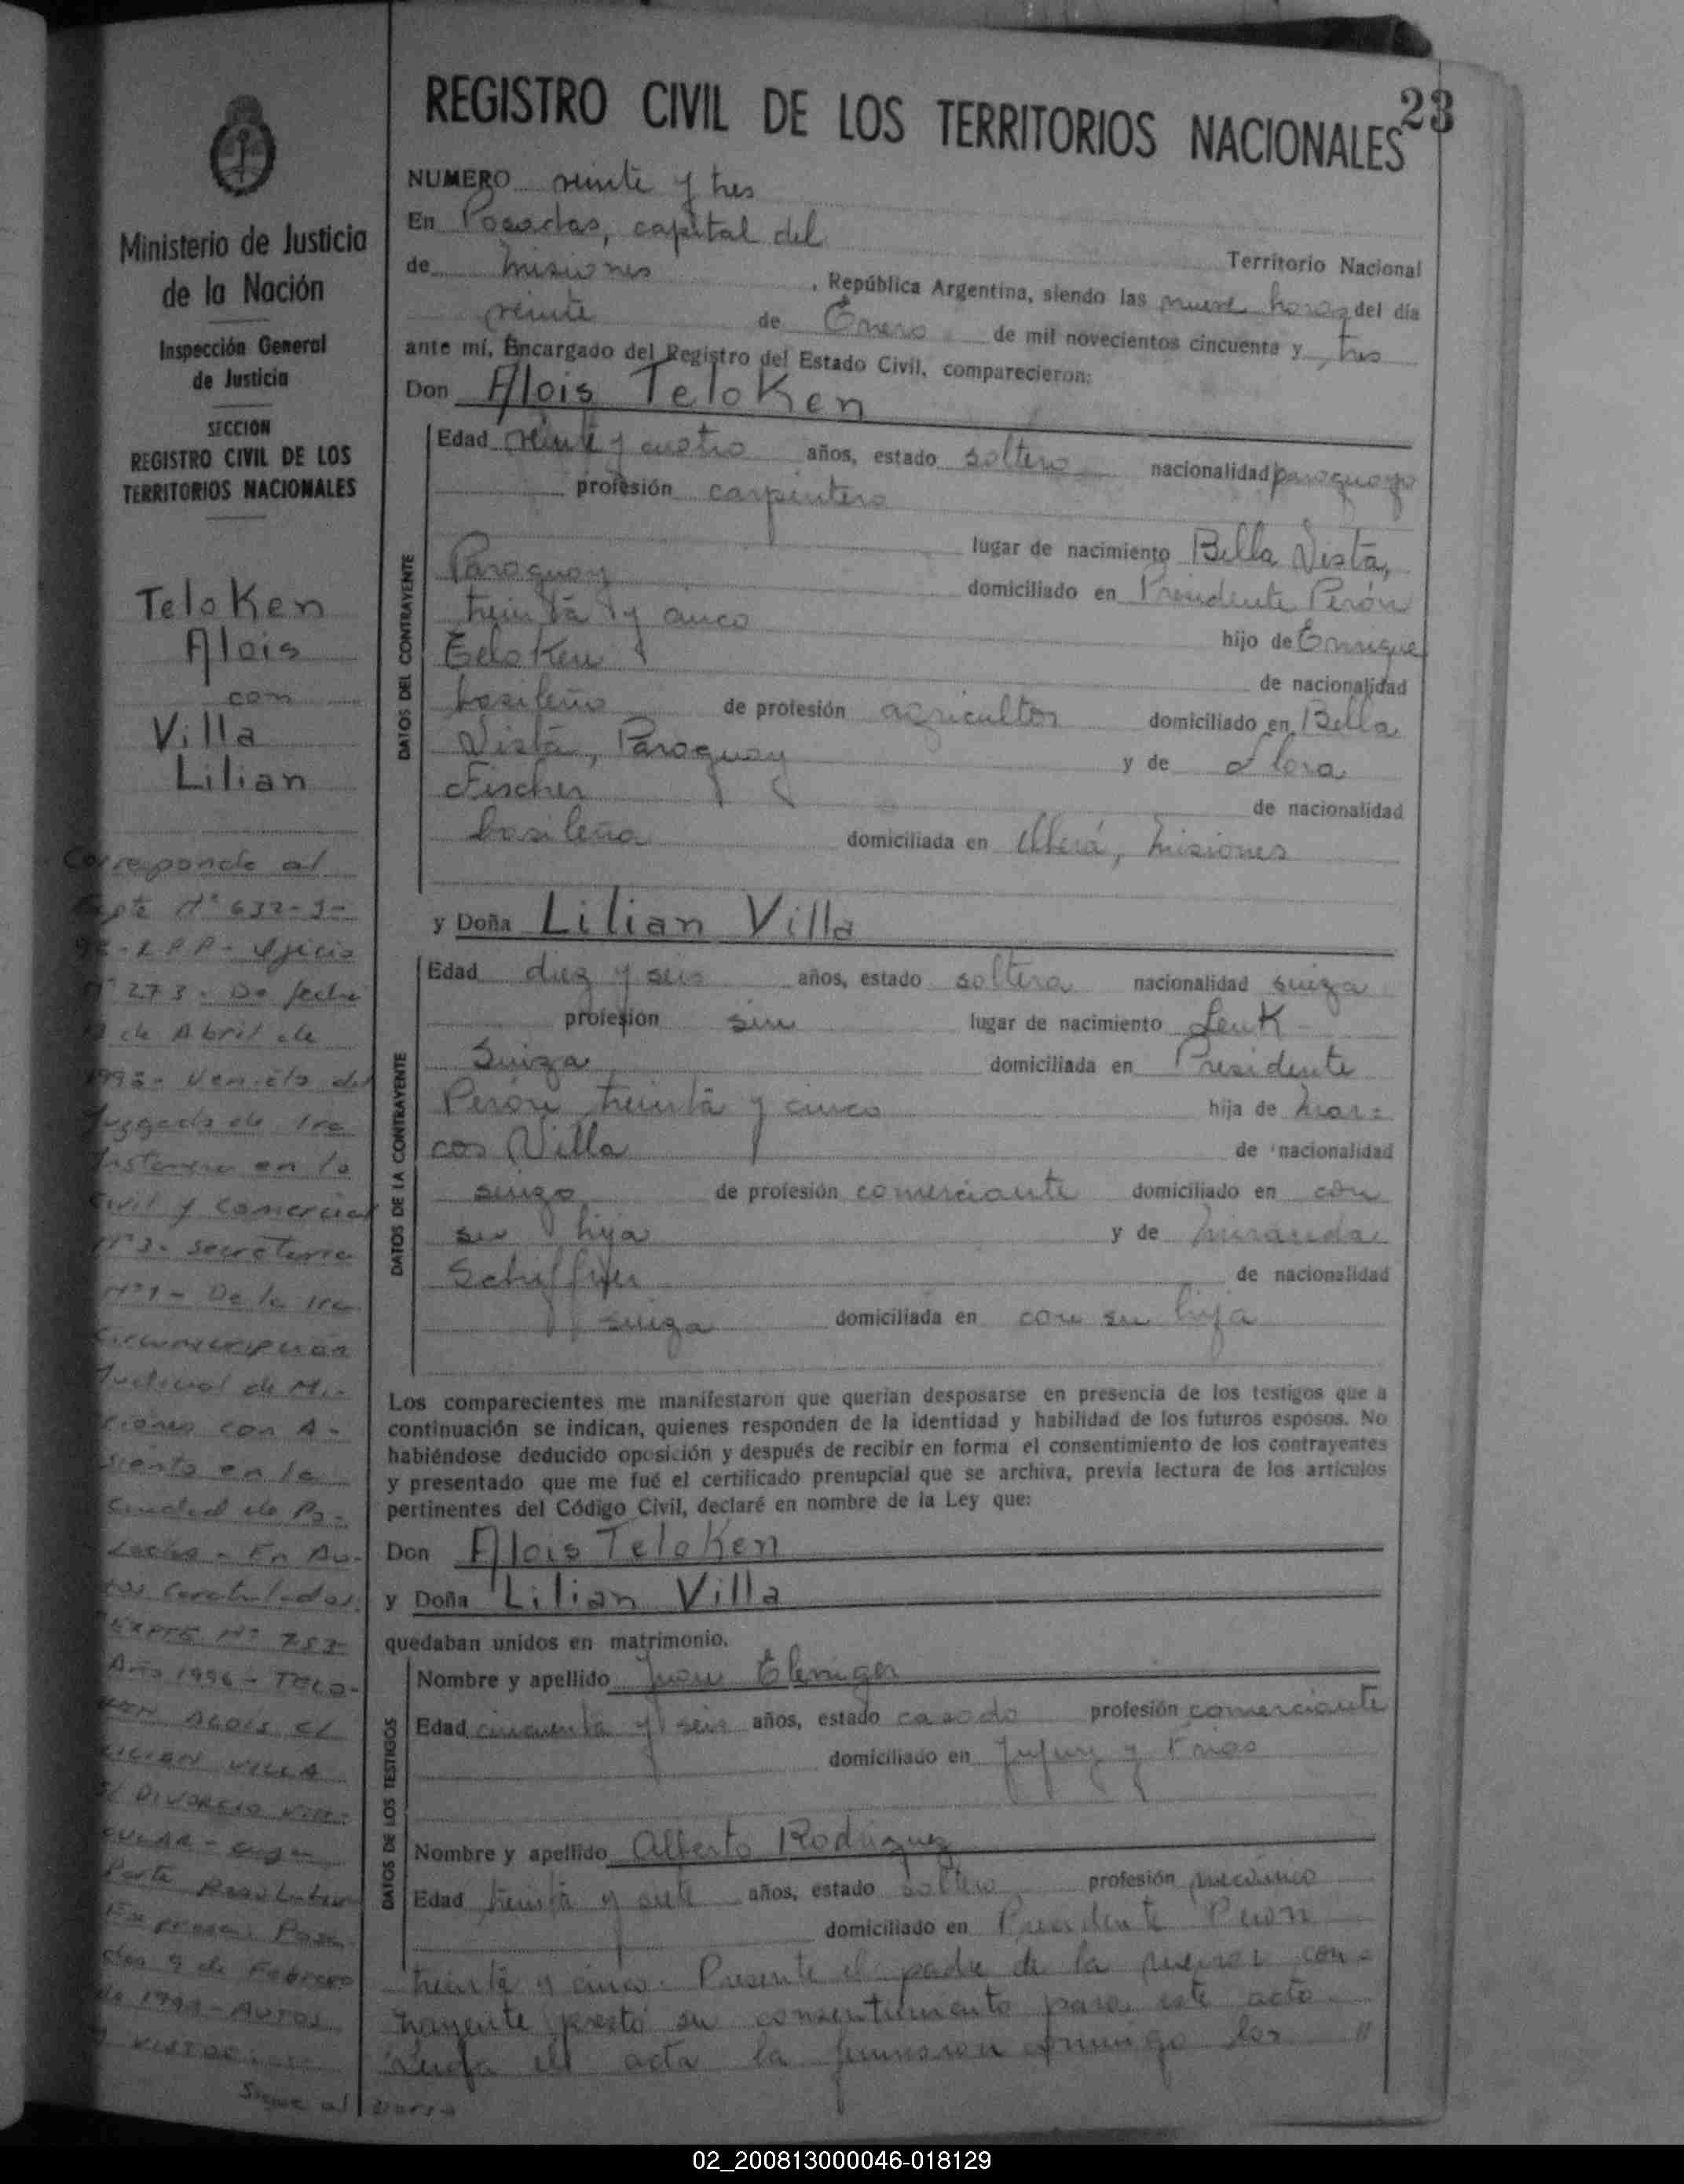 REGISTRO CIVIL DE LOS TERRITORIOS NACIONALES
23
Ministerio de Justicia
de la Nación
Inspección General
de Justicia
SECCION
REGISTRO CIVIL DE LOS
TERRITORIOS NACIONALES
Teloken
Alois
con
Villa
Lilian
Corresponde al
N° 632-
Oficio
N° 273- De fecha
de Abril de
1998- Venido del
Juzgado de 1ra
Instancia en lo
Civil y Comercial
N°3- Secretaria
N°1- De la 1ra
Circunscripción
Judicial de Mi-
siones con A-
siento en la
Ciudad de Po-
sadas- En Au-
tos Caratulados
EXPTE N° 753-
Año 1996- TELO-
KEN ALOIS C/
LILIAN VILLA
S/ DIVORCIO VIN-
CULAR- cuya
Parte Resolutiva
Expresa: Posa-
das 9 de Febrero
de 1998- AUTOS
Y VISTOS
Sigue al dorso
NUMERO veinte y tres
En Posadas, capital del
Territorio Nacional
de Misiones, República Argentina, siendo las nueve horas del día
veinte de Enero de mil novecientos cincuenta y tres
ante mí, Encargado del Registro del Estado Civil, comparecieron:
Don Alois Teloken
DATOS DEL CONTRAYENTE
Edad veinte y cuatro años, estado soltero nacionalidad paraguayo
profesión carpintero
lugar de nacimiento Bella Vista,
Paraguay domiciliado en Presidente Perón
treinta y cinco hijo de Enrique
Teloken de nacionalidad
brasileño de profesión agricultor domiciliado en Bella
Vista, Paraguay y de Flora
Fischer de nacionalidad
brasileña domiciliada en Oberá, Misiones
y Doña Lilian Villa
DATOS DE LA CONTRAYENTE
Edad diez y seis años, estado soltera nacionalidad suiza
profesión sin lugar de nacimiento Leuk
Suiza domiciliada en Presidente
Perón treinta y cinco hija de Mar=
cos Villa de nacionalidad
suizo de profesión comerciante domiciliado en con
su hija y de Miranda
de nacionalidad
suiza domiciliada en con su hija
Los comparecientes me manifestaron que querian desposarse en presencia de los testigos que a
continuación se indican, quienes responden de la identidad y habilidad de los futuros esposos. No
habiéndose deducido oposición y después de recibir en forma el consentimiento de los contrayentes
y presentado que me fué el certificado prenupcial que se archiva, previa lectura de los artículos
pertinentes del Código Civil, declaré en nombre de la Ley que:
Don Alois Teloken
y Doña Lilian Villa
quedaban unidos en matrimonio.
DATOS DE LOS TESTIGOS
Nombre y apellido Juan
Edad cincuenta y seis años, estado casado profesión comerciante
domiciliado en Jujuy y
Nombre y apellido Alberto Rodriguez
Edad treinta y siete años, estado soltero profesión mecánico
domiciliado en Presidente Perón
treinta y cinco. Presente el padre de la menor con=
trayente prestó su consentimiento para este acto.
Leida el acta la firmaron conmigo los "
02_200813000046-018129